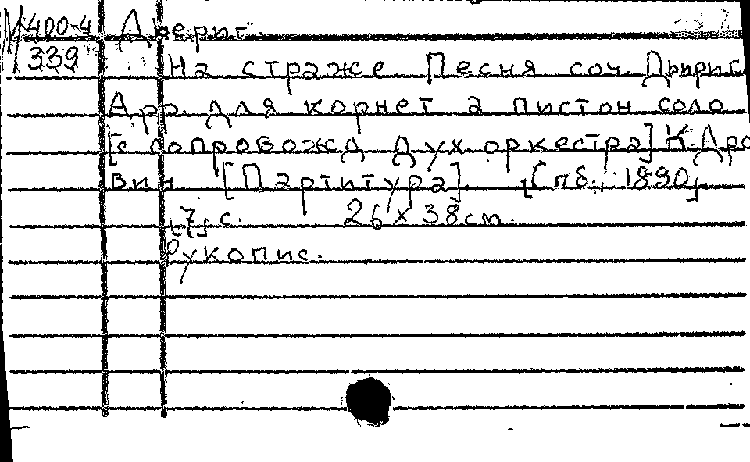 М400-4 Дьерит.
339 На страже. Песня соч. Дьерис
Арр. для корнет а пистон соло
[с сопровожд. дух. оркестра] К. Дро
вин. [Партитура]. [Спб., 1890]
[7] с. 26 x 38 см.
Рукопис.